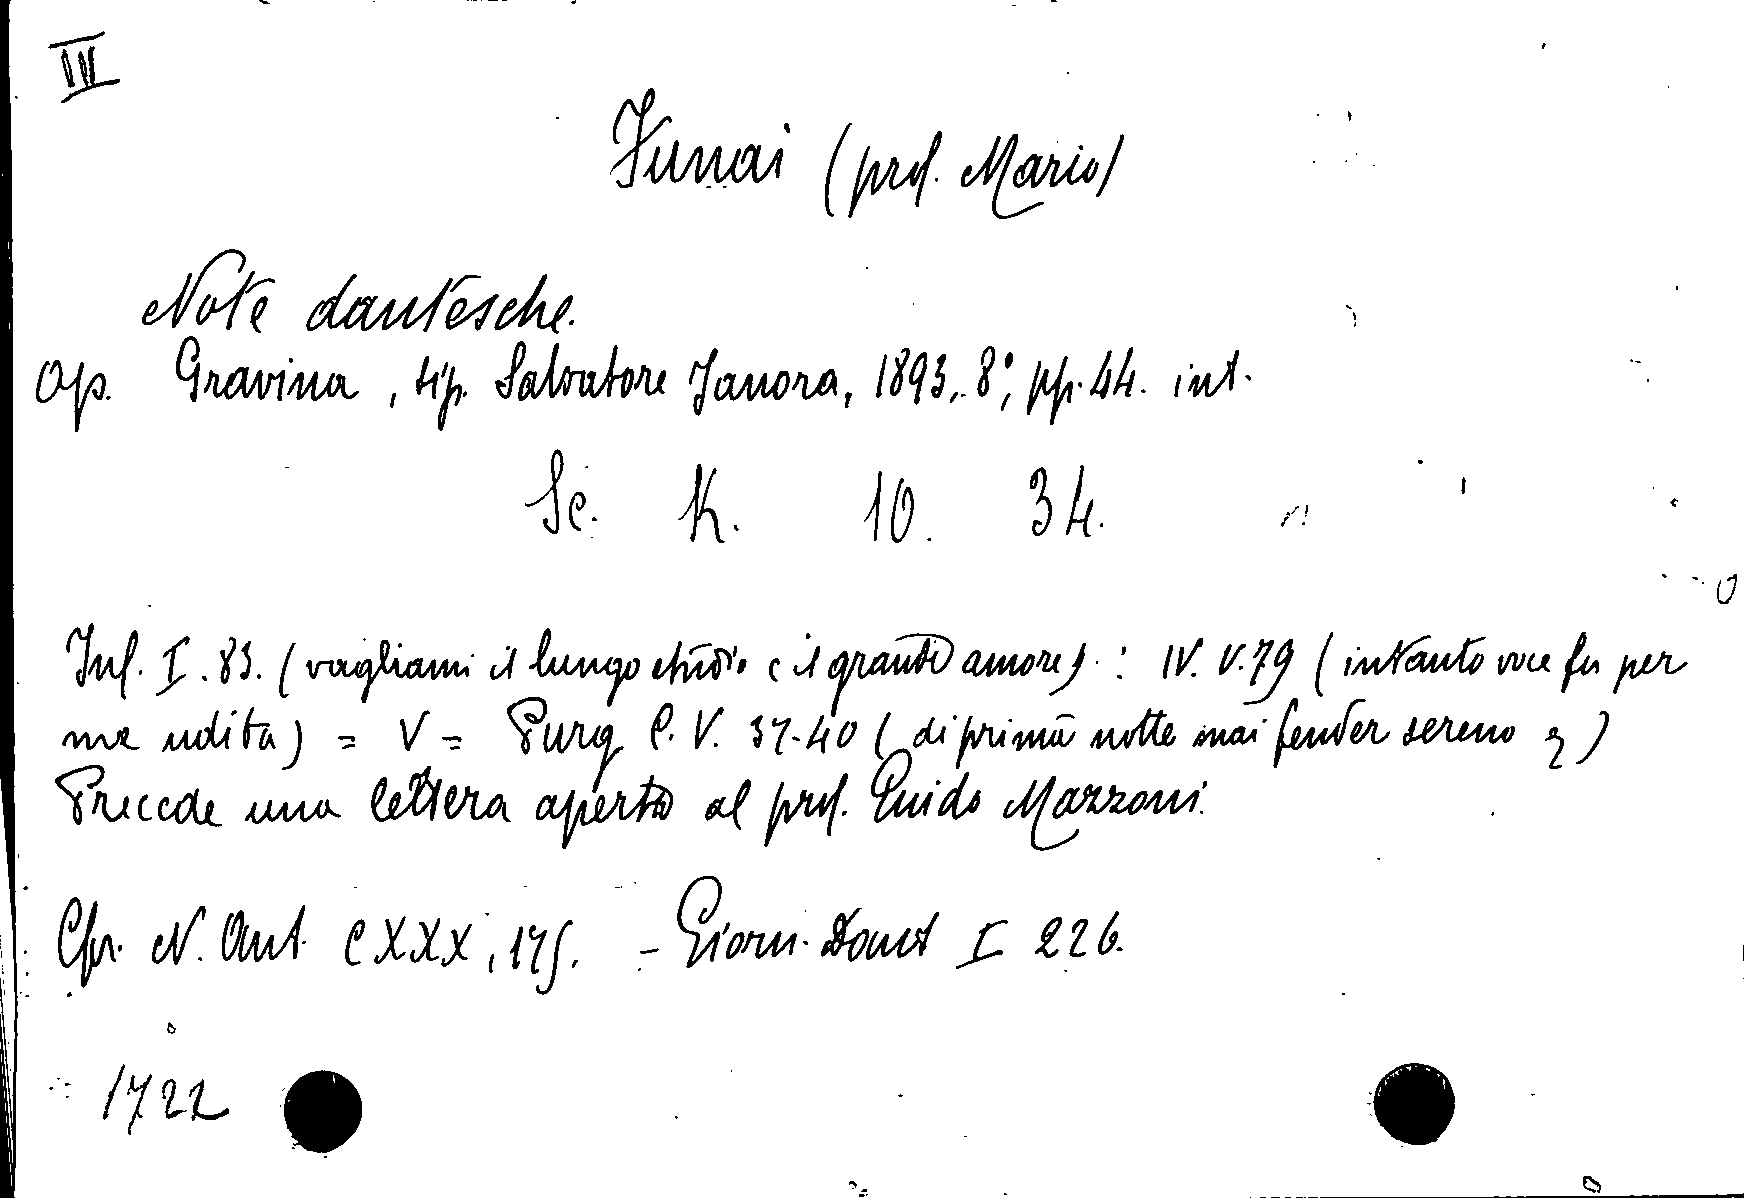 IV
Funai (prof. Mario)
Note dantesche.
Op. Gravina, tip. Salvatore Janora, 1893, 8°, pp. 44. int.
Sc. K. 10. 34.
Inf. I. 83. (vagliami il lungo studio e il grande amore) : IV. V. 79 (intanto voce fu per
me udita) = V = Purg C. V. 37-40 (di prima notte mai fender sereno)
Precede una lettera aperta al prof. Guido Mazzoni.
Cfr. N. Ant. CXXX, 175. - Giorn. Dant I 226.
1722